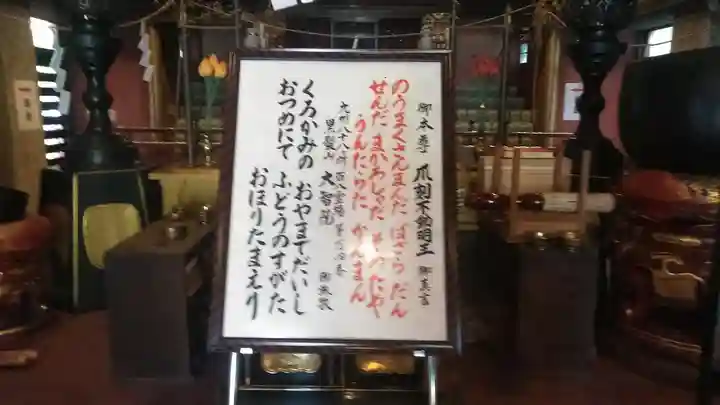 御本尊 爪刻不動明王 御真言
のうまくさんまんだ ばさら だん
せんだ まかろしゃだ そわたや
うんたらた かんまん
九州八十八ヶ所 百八霊場
黒髪山 大智院 御詠歌
くろかみの おやまでだいし
おつめにて ふどうのすがた
おほりたまえり